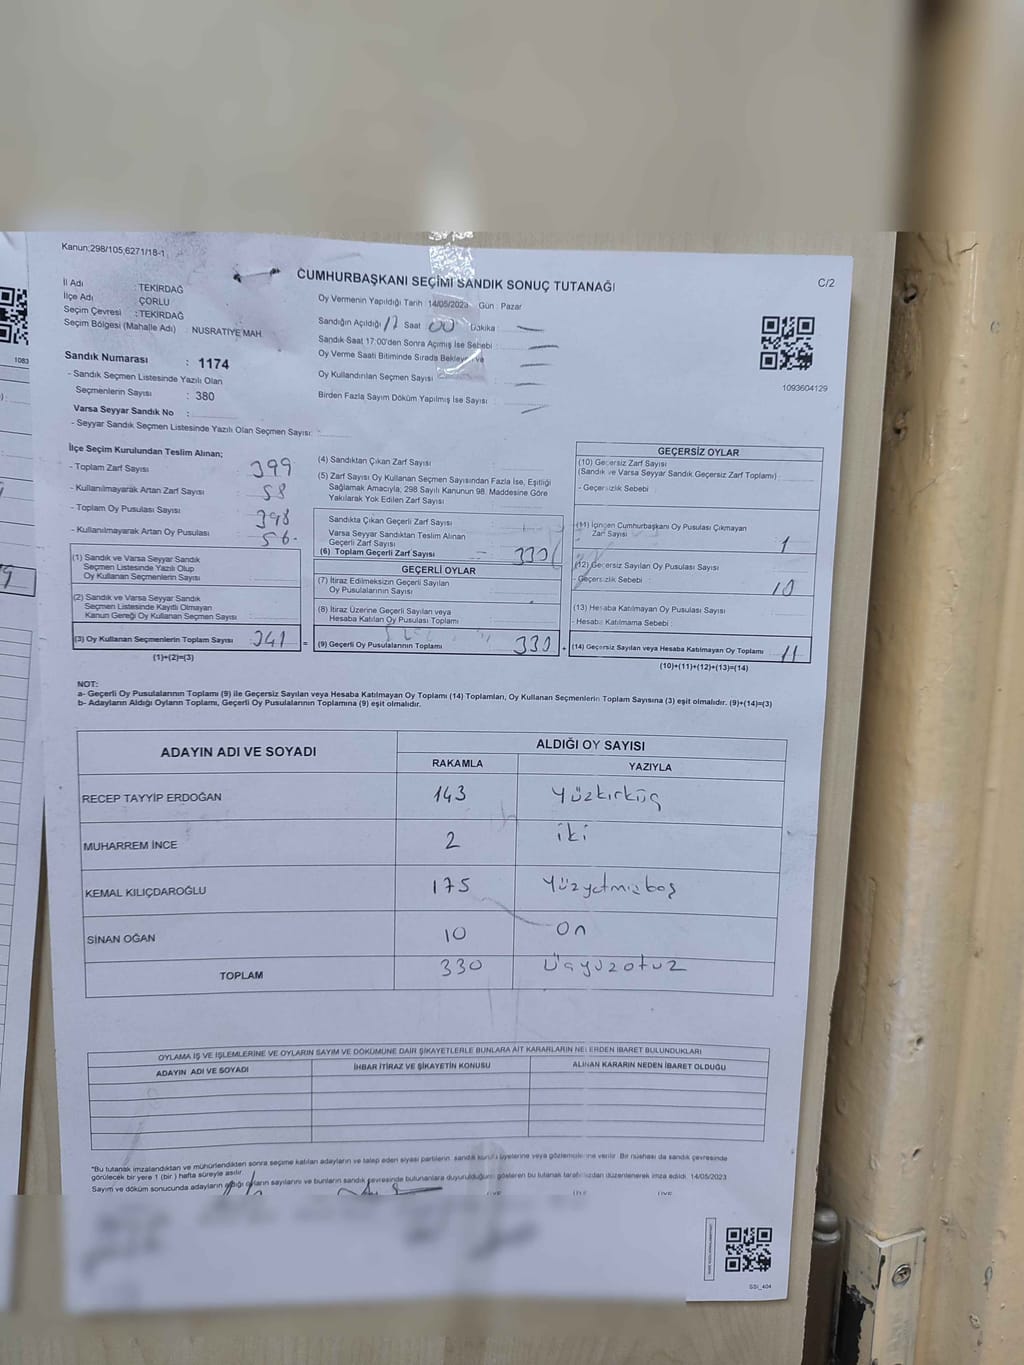 Kanun:298/105,6271/18-1
CUMHURBAŞKANI SEÇİMİ SANDIK SONUÇ TUTANAĞI
C/2
İl Adı : TEKİRDAĞ
İlçe Adı : ÇORLU
Seçim Çevresi : TEKİRDAĞ
Seçim Bölgesi (Mahalle Adı) : NUSRATİYE MAH.
Sandık Numarası : 1174
- Sandık Seçmen Listesinde Yazılı Olan
Seçmenlerin Sayısı : 380
Varsa Seyyar Sandık No :
- Seyyar Sandık Seçmen Listesinde Yazılı Olan Seçmen Sayısı:
Oy Vermenin Yapıldığı Tarih : 14/05/2023 Gün : Pazar
Sandığın Açıldığı 17 Saat 00 Dakika :
Sandık Saat 17:00'den Sonra Açımış İse Sebebi :
Oy Verme Saati Bitiminde Sırada
Oy Kullandırılan Seçmen Sayısı
Birden Fazla Sayım Döküm Yapılmış İse Sayısı :
1093604129
1083
İlçe Seçim Kurulundan Teslim Alınan;
- Toplam Zarf Sayısı 399
- Kullanılmayarak Artan Zarf Sayısı 58
- Toplam Oy Pusulası Sayısı 398
- Kullanılmayarak Artan Oy Pusulası 56
(1) Sandık ve Varsa Seyyar Sandık
Seçmen Listesinde Yazılı Olup
Oy Kullanan Seçmenlerin Sayısı
(2) Sandık ve Varsa Seyyar Sandık
Seçmen Listesinde Kayıtlı Olmayan
Kanun Gereği Oy Kullanan Seçmen Sayısı
(3) Oy Kullanan Seçmenlerin Toplam Sayısı 341 =
(1)+(2)=(3)
(4) Sandıktan Çıkan Zarf Sayısı
(5) Zarf Sayısı Oy Kullanan Seçmen Sayısından Fazla İse, Eşitliği
Sağlamak Amacıyla, 298 Sayılı Kanunun 98. Maddesine Göre
Yakılarak Yok Edilen Zarf Sayısı
Sandıkta Çıkan Geçerli Zarf Sayısı
Varsa Seyyar Sandıktan Teslim Alınan
Geçerli Zarf Sayısı
(6) Toplam Geçerli Zarf Sayısı 330
GEÇERLİ OYLAR
(7) İtiraz Edilmeksizin Geçerli Sayılan
Oy Pusulalarının Sayısı
(8) İtiraz Üzerine Geçerli Sayılan veya
Hesaba Katılan Oy Pusulası Toplamı
(9) Geçerli Oy Pusulalarının Toplamı 330 +
GEÇERSİZ OYLAR
(10) Geçersiz Zarf Sayısı
(Sandık ve Varsa Seyyar Sandık Geçersiz Zarf Toplamı)
- Geçersizlik Sebebi
(11) İçinden Cumhurbaşkanı Oy Pusulası Çıkmayan
Zarf Sayısı 1
(12) Geçersiz Sayılan Oy Pusulası Sayısı
- Geçersizlik Sebebi : 10
(13) Hesaba Katılmayan Oy Pusulası Sayısı
- Hesaba Katılmama Sebebi :
(14) Geçersiz Sayılan veya Hesaba Katılmayan Oy Toplamı 11
(10)+(11)+(12)+(13)=(14)
NOT:
a- Geçerli Oy Pusulalarının Toplamı (9) ile Geçersiz Sayılan veya Hesaba Katılmayan Oy Toplamı (14) Toplamları, Oy Kullanan Seçmenlerin Toplam Sayısına (3) eşit olmalıdır. (9)+(14)=(3)
b- Adayların Aldığı Oyların Toplamı, Geçerli Oy Pusulalarının Toplamına (9) eşit olmalıdır.
ADAYIN ADI VE SOYADI
ALDIĞI OY SAYISI
RAKAMLA YAZIYLA
RECEP TAYYİP ERDOĞAN 143 Yüzkırküç
MUHARREM İNCE 2 iki
KEMAL KILIÇDAROĞLU 175 Yüzyetmişbeş
SİNAN OĞAN 10 On
TOPLAM 330 Üçyüzotuz
OYLAMA İŞ VE İŞLEMLERİNE VE OYLARIN SAYIM VE DÖKÜMÜNE DAİR ŞİKAYETLERLE BUNLARA AİT KARARLARIN NELERDEN İBARET BULUNDUKLARI
ADAYIN ADI VE SOYADI İHBAR İTİRAZ VE ŞİKAYETİN KONUSU ALINAN KARARIN NEDEN İBARET OLDUĞU
*Bu tutanak imzalandıktan ve mühürlendikten sonra seçime katılan adayların ve talep eden siyasi partilerin, sandık kurulu üyelerine veya gözlemcilerine verilir. Bir nüshası da sandık çevresinde
görülecek bir yere 1 (bir ) hafta süreyle asılır.
Sayım ve döküm sonucunda adayların aldığı oyların sayılarını ve bunların sandık çevresinde bulunanlara duyurulduğunu gösteren bu tutanak tarafımızdan düzenlenerek imza edildi. 14/05/2023
SSI_404